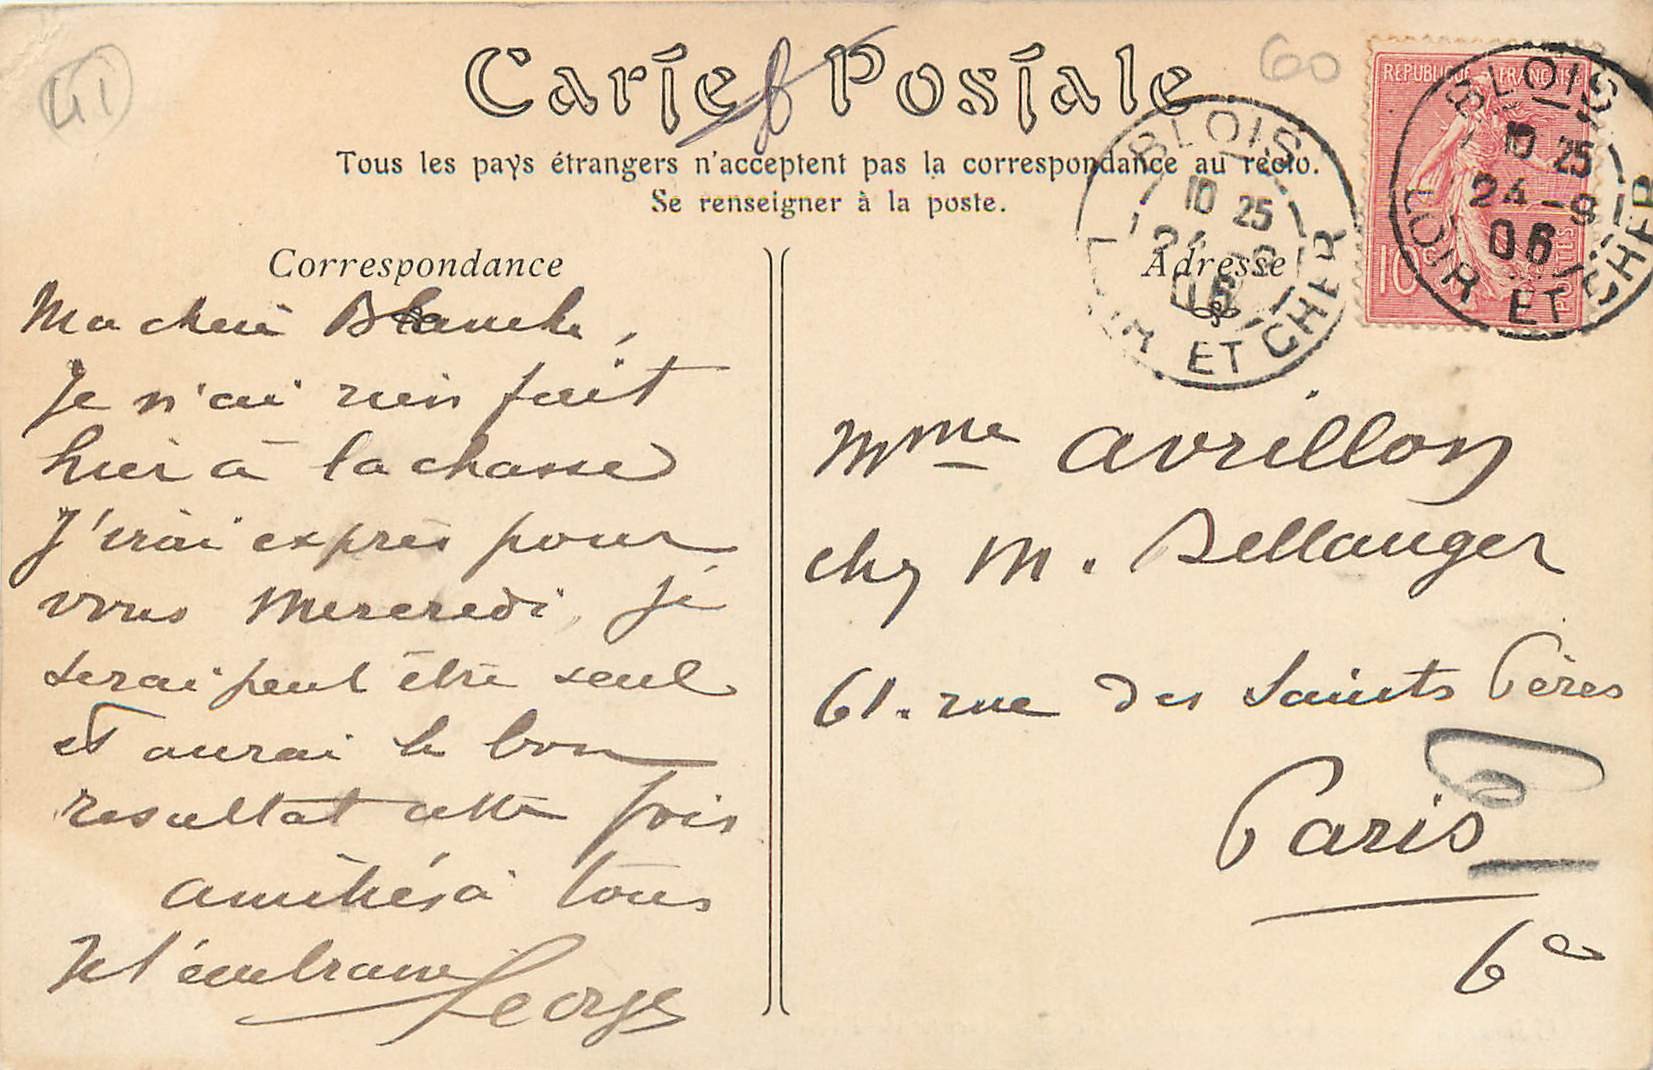 41
60
Carte Postale
Tous les pays étrangers n'acceptent pas la correspondance au recto.
Se renseigner à la poste.
Correspondance
Adresse
REPUBLIQUE FRANÇAISE
10c
POSTES
BLOIS
10 25
24-9
06
LOIR ET CHER
BLOIS
10 25
24-9
06
LOIR ET CHER
Ma chère Blanche,
Je n'ai rien fait
hier à la chasse
J'irai exprès pour
vous Mercredi, je
serai peut être seul
et aurai le bon
resultat cette fois
amitiés à tous
Je t'embrasse
George
Mme Avrillon
chez M. Bellanger
61. rue des Saints Pères
Paris
6e